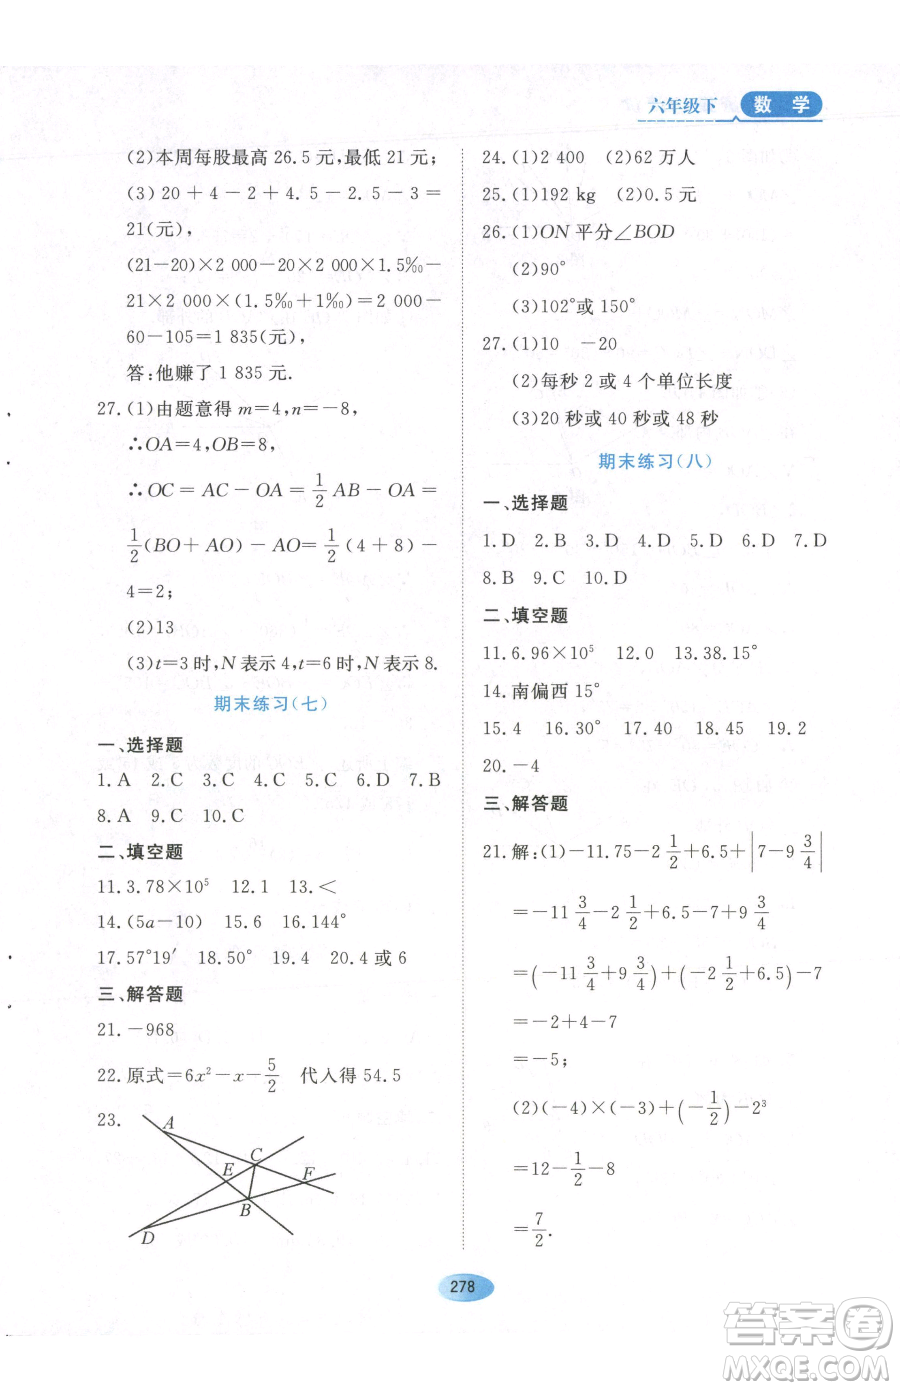 六年级下 数 学
(2)本周每股最高 26.5 元,最低 21 元;
(3) 20 + 4 - 2 + 4.5 - 2.5 - 3 =
21(元),
(21-20)×2 000-20×2 000×1.5‰-
21×2 000×(1.5‰+1‰)=2 000-
60-105=1 835(元),
答:他赚了 1 835 元.
27.(1)由题意得 m=4,n=-8,
∴OA=4,OB=8,
∴OC = AC - OA = 1/2 AB - OA =
1/2(BO + AO) - AO= 1/2 (4 + 8) -
4=2;
(2)13
(3)t=3 时,N 表示 4,t=6 时,N 表示 8.
期末练习(七)
一、选择题
1.A 2.C 3.C 4.C 5.C 6.D 7.B
8.A 9.C 10.C
二、填空题
11.3.78×10⁵ 12.1 13.<
14.(5a-10) 15.6 16.144°
17.57°19′ 18.50° 19.4 20.4 或 6
三、解答题
21.-968
22.原式=6x²-x-5/2 代入得 54.5
23.
A
C
E
F
B
D
24.(1)2 400 (2)62 万人
25.(1)192 kg (2)0.5 元
26.(1)ON 平分∠BOD
(2)90°
(3)102°或 150°
27.(1)10 -20
(2)每秒 2 或 4 个单位长度
(3)20 秒或 40 秒或 48 秒
期末练习(八)
一、选择题
1.D 2.B 3.D 4.D 5.D 6.D 7.D
8.B 9.C 10.D
二、填空题
11.6.96×10⁵ 12.0 13.38.15°
14.南偏西 15°
15.4 16.30° 17.40 18.45 19.2
20.-4
三、解答题
21.解:(1)-11.75-2 1/2+6.5+|7-9 3/4|
=-11 3/4-2 1/2+6.5-7+9 3/4
=(-11 3/4+9 3/4)+(-2 1/2+6.5)-7
=-2+4-7
=-5;
(2)(-4)×(-3)+(-1/2)-2³
=12-1/2-8
=7/2.
278
答案圈
MXQE.COM